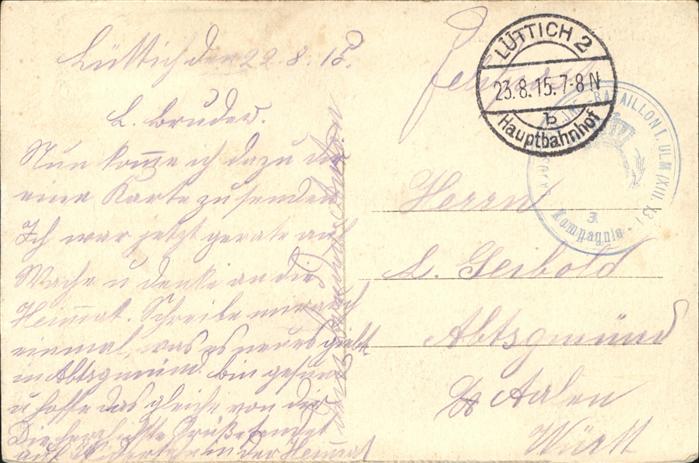 Lüttich den 22.8.15.
L. Bruder.
Nun komme ich dazu dir
eine Karte zu senden
Ich war jetzt gerate auf
Wache u denke an die
Heimmat. Schreibe mir auch
einmal, was es neues giebt
in Abtsgmünd. bin gesund
u hoffe das gleiche von dir
Die herzlichste Grüße sendet
auf Widersehn in der Heimat
LÜTTICH 2
23.8.15.7-8N
b
Hauptbahnhof
BATAILLON I. ULM (XIII. 13)
3.
Kompagnie
Herrn
L. Geibold
Abtsgmünd
Aalen
Württ